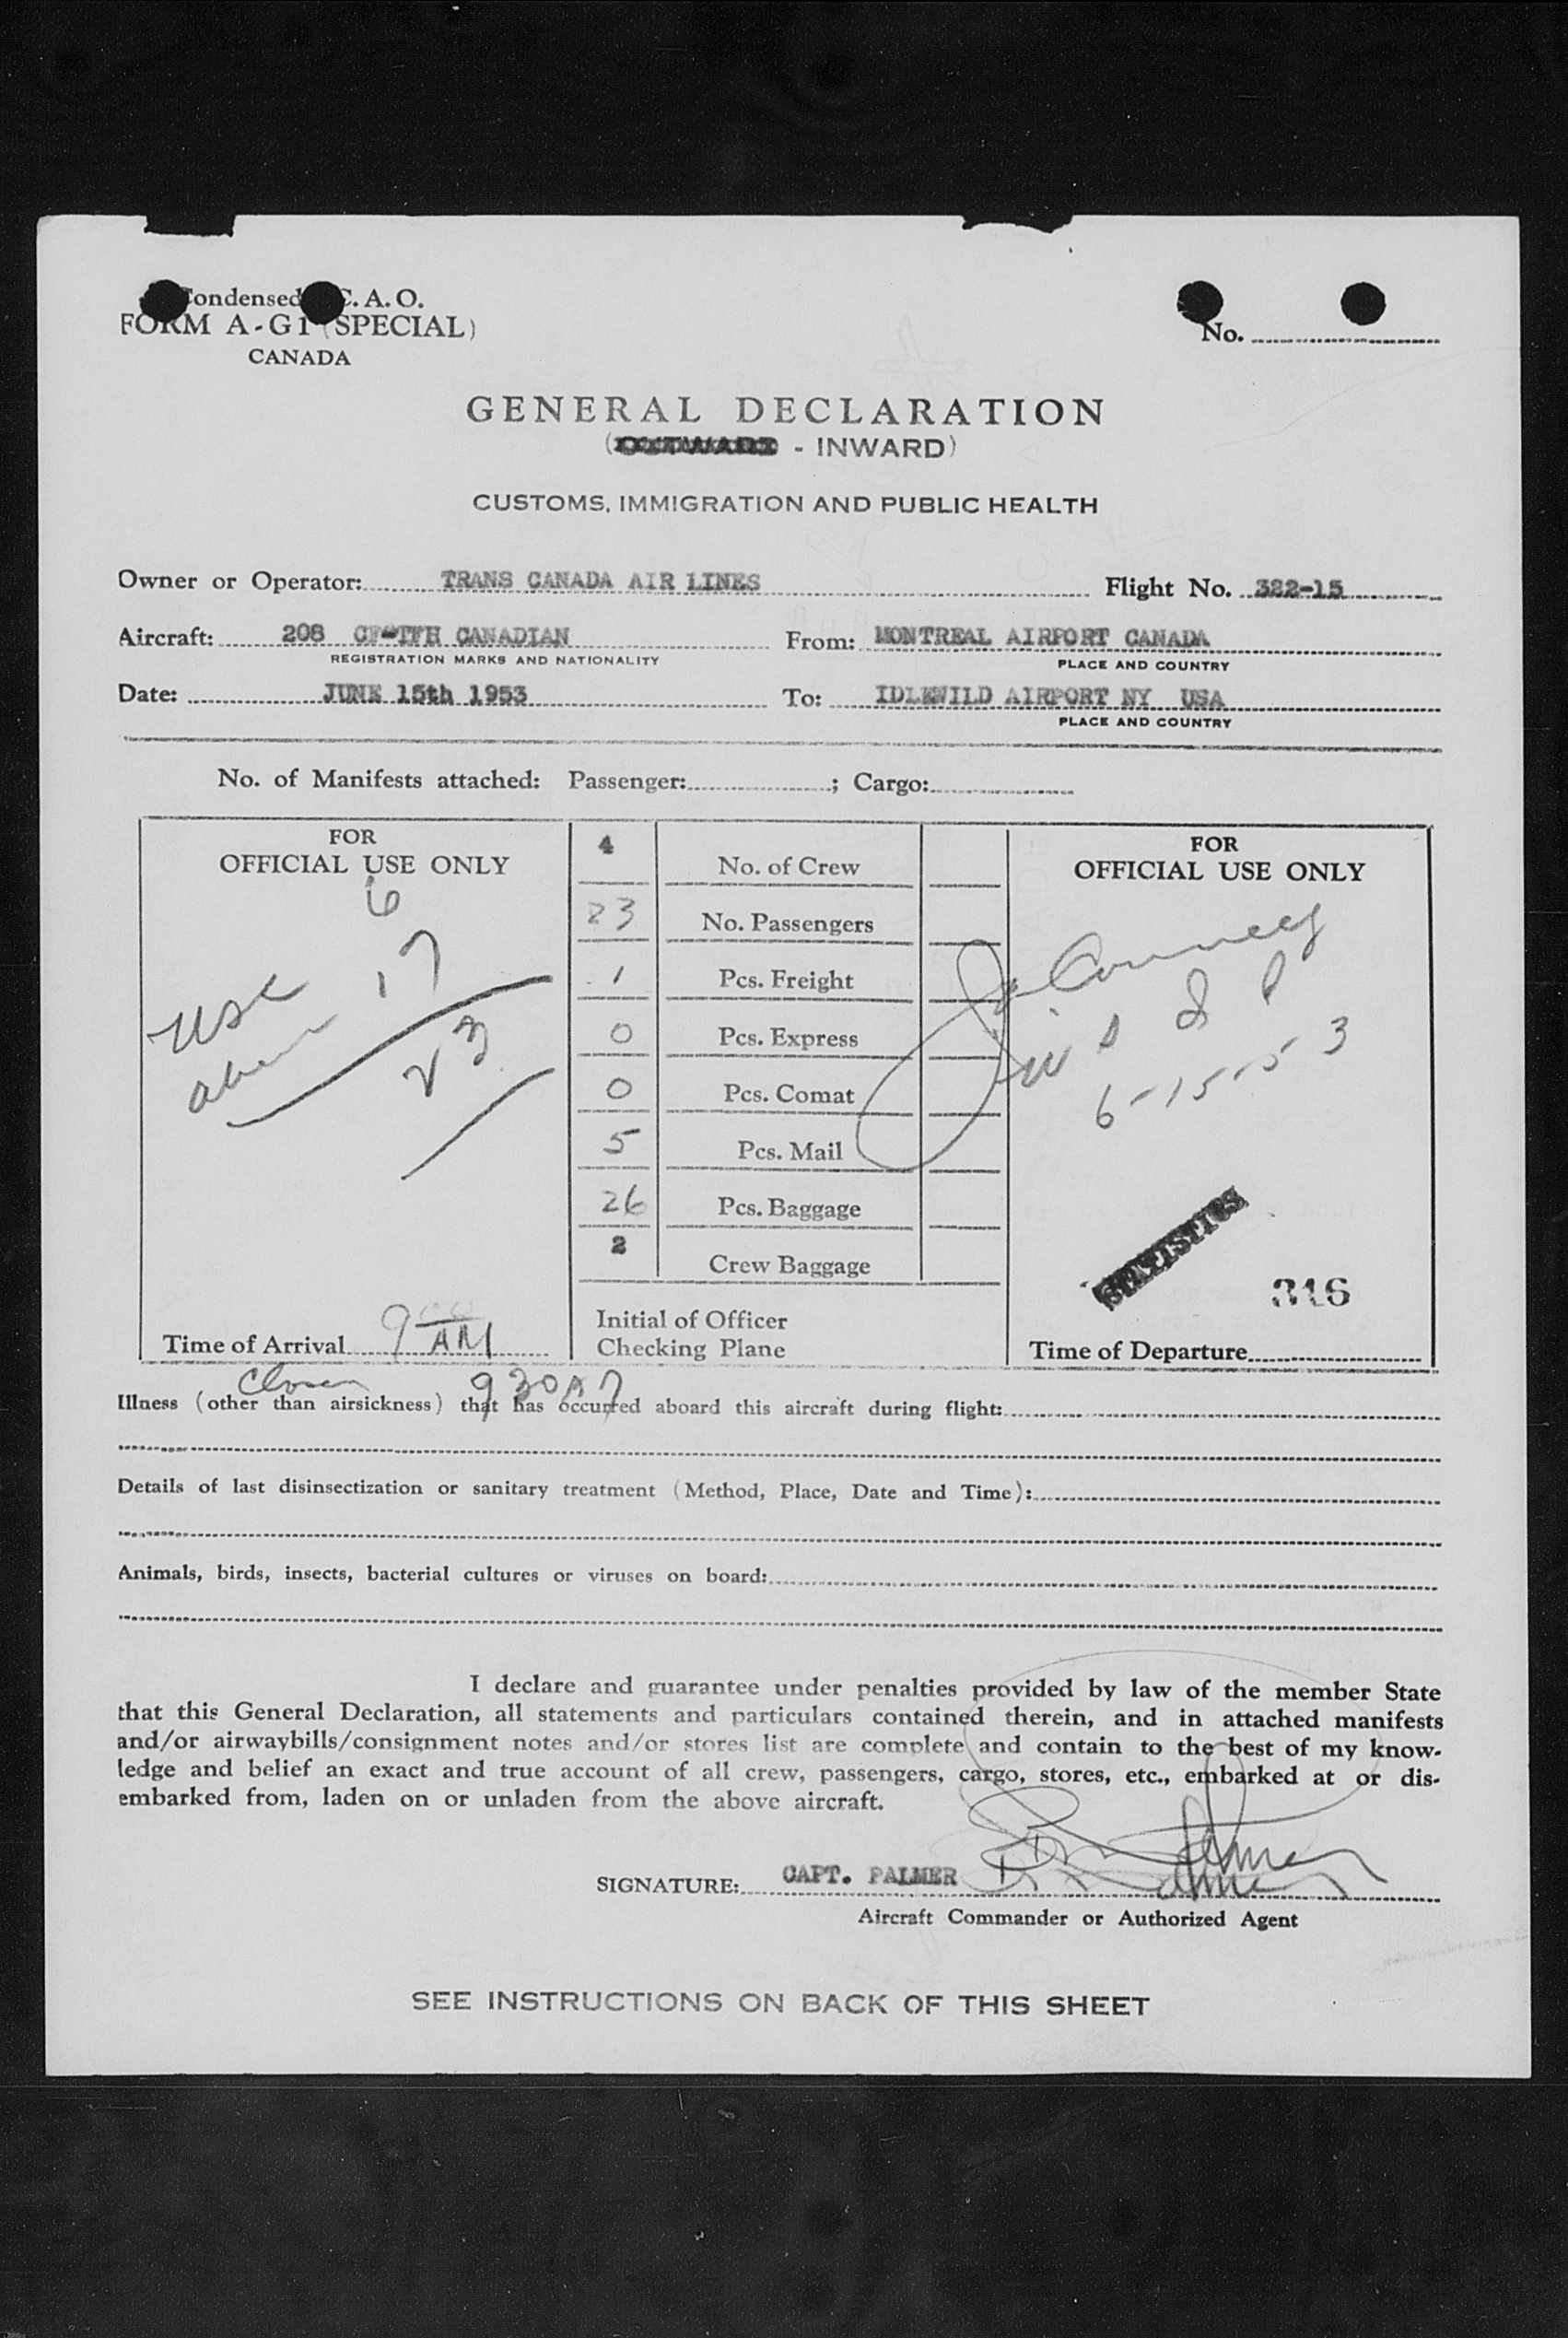 Condensed C.A.O.
FORM A-G1 (SPECIAL)
CANADA
No.
GENERAL DECLARATION
(OUTWARD - INWARD)
CUSTOMS, IMMIGRATION AND PUBLIC HEALTH
Owner or Operator: TRANS CANADA AIR LINES Flight No. 322-15
Aircraft: 208 CF-TFH CANADIAN From: MONTREAL AIRPORT CANADA
REGISTRATION MARKS AND NATIONALITY PLACE AND COUNTRY
Date: JUNE 15th 1953 To: IDLEWILD AIRPORT NY USA
PLACE AND COUNTRY
No. of Manifests attached: Passenger: ; Cargo:
FOR
OFFICIAL USE ONLY
USC 6
alien 17
23
Time of Arrival 9 00 AM
4 No. of Crew
23 No. Passengers
1 Pcs. Freight
0 Pcs. Express
0 Pcs. Comat
5 Pcs. Mail
26 Pcs. Baggage
2 Crew Baggage
Initial of Officer
Checking Plane
FOR
OFFICIAL USE ONLY
6-15-53
STATISTICS
316
Time of Departure
930A
Illness (other than airsickness) that has occurred aboard this aircraft during flight:
Details of last disinsectization or sanitary treatment (Method, Place, Date and Time):
Animals, birds, insects, bacterial cultures or viruses on board:
I declare and guarantee under penalties provided by law of the member State
that this General Declaration, all statements and particulars contained therein, and in attached manifests
and/or airwaybills/consignment notes and/or stores list are complete and contain to the best of my know-
ledge and belief an exact and true account of all crew, passengers, cargo, stores, etc., embarked at or dis-
embarked from, laden on or unladen from the above aircraft.
SIGNATURE: CAPT. PALMER
Aircraft Commander or Authorized Agent
SEE INSTRUCTIONS ON BACK OF THIS SHEET